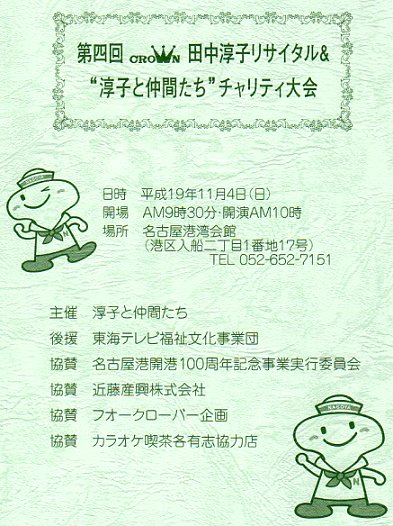 第四回 CROWN 田中淳子リサイタル&
“淳子と仲間たち”チャリティ大会
日時 平成19年11月4日(日)
開場 AM9時30分・開演AM10時
場所 名古屋港湾会館
(港区入船二丁目1番地17号)
TEL 052-652-7151
主催 淳子と仲間たち
後援 東海テレビ福祉文化事業団
協賛 名古屋港開港100周年記念事業実行委員会
協賛 近藤産興株式会社
協賛 フオークローバー企画
協賛 カラオケ喫茶各有志協力店
NAGOYA
N
N